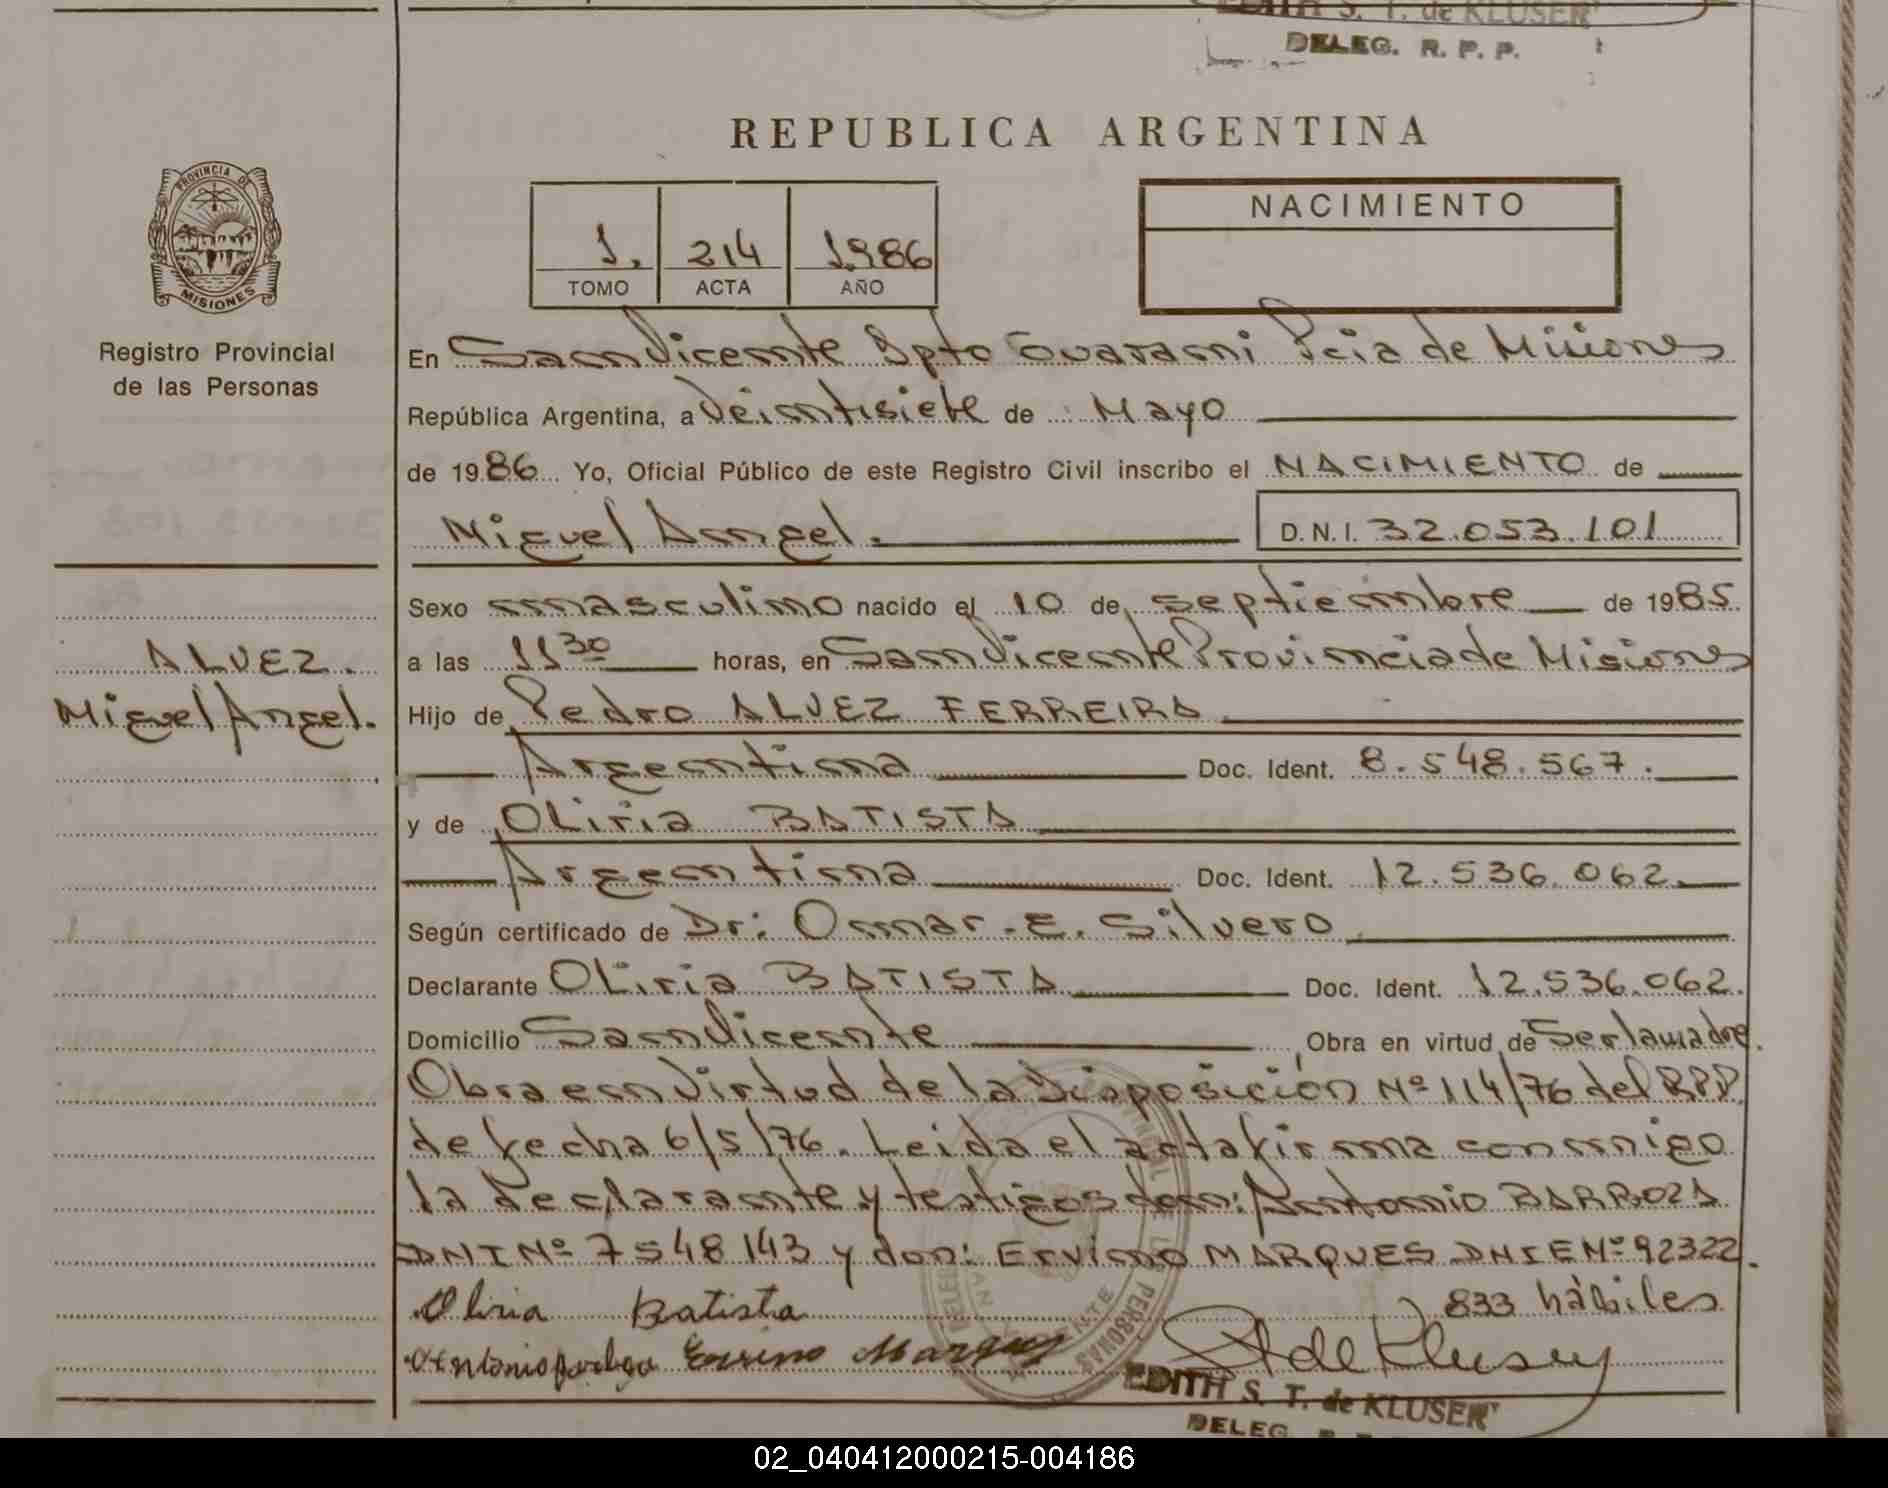 EDITH S. T. de KLUSER
DELEG. R. P. P.
REPUBLICA ARGENTINA
PROVINCIA DE
MISIONES
Registro Provincial
de las Personas
1. 214 1.986
TOMO ACTA AÑO
NACIMIENTO
En San Vicente Dpto Guarani Pcia de Misiones
República Argentina, a Veintisiete de Mayo
de 1986 Yo, Oficial Público de este Registro Civil inscribo el NACIMIENTO de
Miguel Angel. D.N.I. 32.053.101
Sexo masculino nacido el 10 de septiembre de 1985
ALVEZ.
Miguel Angel.
a las 11 30 horas, en San Vicente Provincia de Misiones
Hijo de Pedro ALVEZ FERREIRA
Argentina Doc. Ident. 8.548.567.
y de OLiria BATISTA
Argentina Doc. Ident. 12.536.062.
Según certificado de Dr: Omar.E. Silvero
Declarante OLiria BATISTA Doc. Ident. 12.536.062.
Domicilio San Vicente Obra en virtud de Ser la madre.
Obra en Virtud de la Disposición Nº 114/76 del RPP.
de fecha 6/5/76. Leida el acta firma conmigo
la Declarante y testigos don: Antonio BARBOZA
DNI Nº 7548143 y don: Ervino MARQUES DNIE Nº 92322.
833 hábiles
Oliria Batista
Ervino Marques
EDITH S. T. de KLUSER
DELEG.
02_040412000215-004186